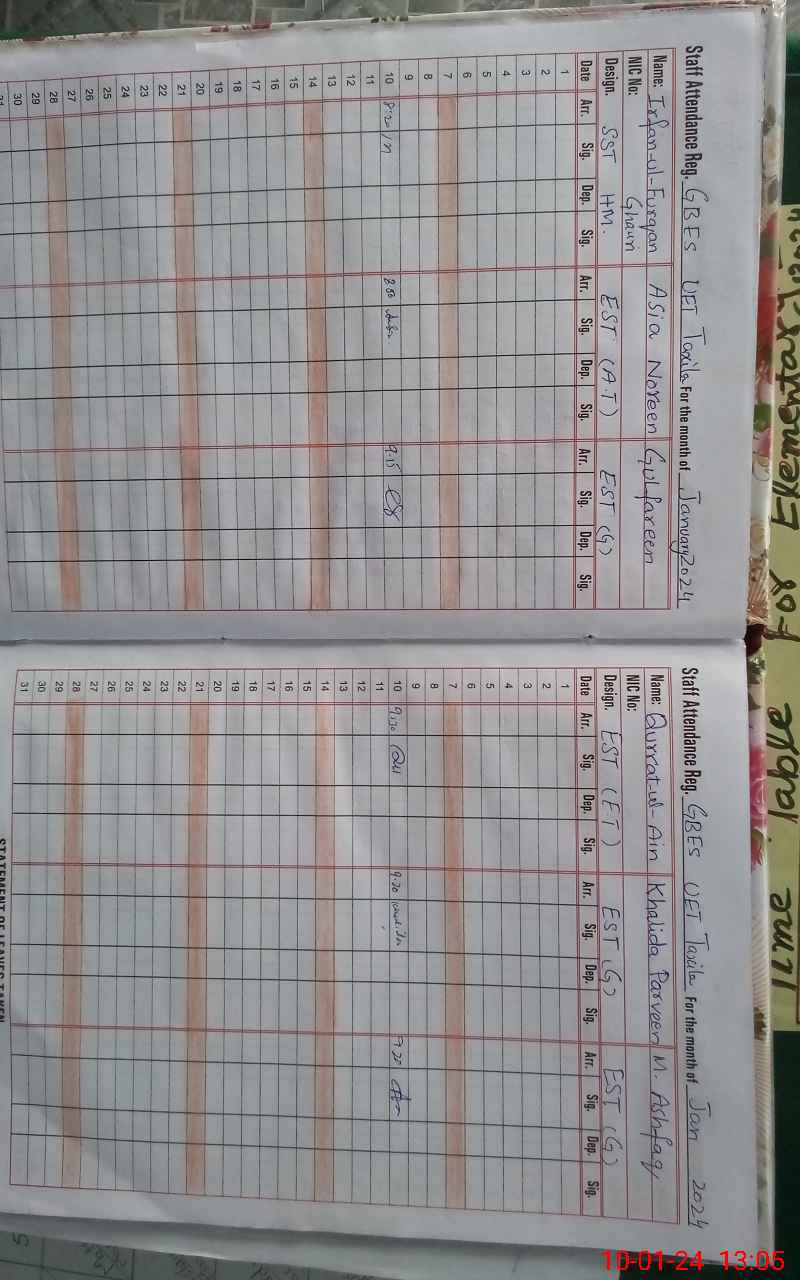 Staff Attendance Reg. GBES UET Taxila For the month of January 2024
Name: Irfan-ul-Furqan Ghauri Asia Noreen Gulfareen
NIC No:
Design. SST HM. EST (A.T) EST (G)
Date Arr. Sig. Dep. Sig. Arr. Sig. Dep. Sig. Arr. Sig. Dep. Sig.
1
2
3
4
5
6
7
8
9
10 8:20 8:50 9:15
11
12
13
14
15
16
17
18
19
20
21
22
23
24
25
26
27
28
29
30
31
Staff Attendance Reg. GBES UET Taxila For the month of Jan 2024
Name: Qurrat-ul-Ain Khalida Parveen M. Ashfaq
NIC No:
Design. EST (E.T) EST (G) EST (G)
Date Arr. Sig. Dep. Sig. Arr. Sig. Dep. Sig. Arr. Sig. Dep. Sig.
1
2
3
4
5
6
7
8
9
10 9:30 9:20 9:20
11
12
13
14
15
16
17
18
19
20
21
22
23
24
25
26
27
28
29
30
31
STATEMENT OF LEAVES TAKEN
10-01-24 13:05